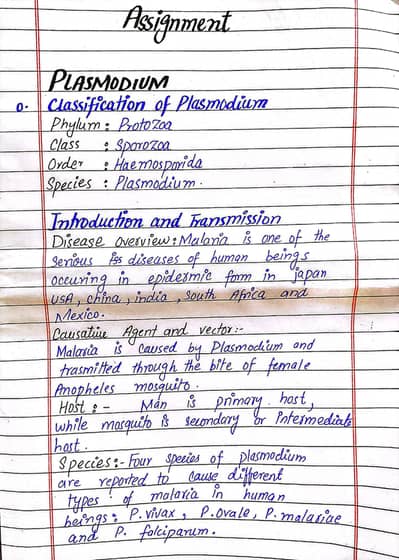 Assignment
PLASMODIUM
0. Classification of Plasmodium
Phylum : Protozoa
Class : Sporozoa
Order : Haemosporida
Species : Plasmodium.
Introduction and Transmission
Disease overview : Malaria is one of the
serious diseases of human beings
occuring in epidermic form in japan
USA, china, india, South Africa and
Mexico.
Causative Agent and vector :-
Malaria is caused by Plasmodium and
trasmitted through the bite of female
Anopheles mosquito.
Host :- Man is primary host,
while mosquito is secondary or Intermediate
host.
Species :- Four species of plasmodium
are reported to cause different
types of malaria in human
beings : P. vivax, P. ovale, P. malariae
and P. falciparum.